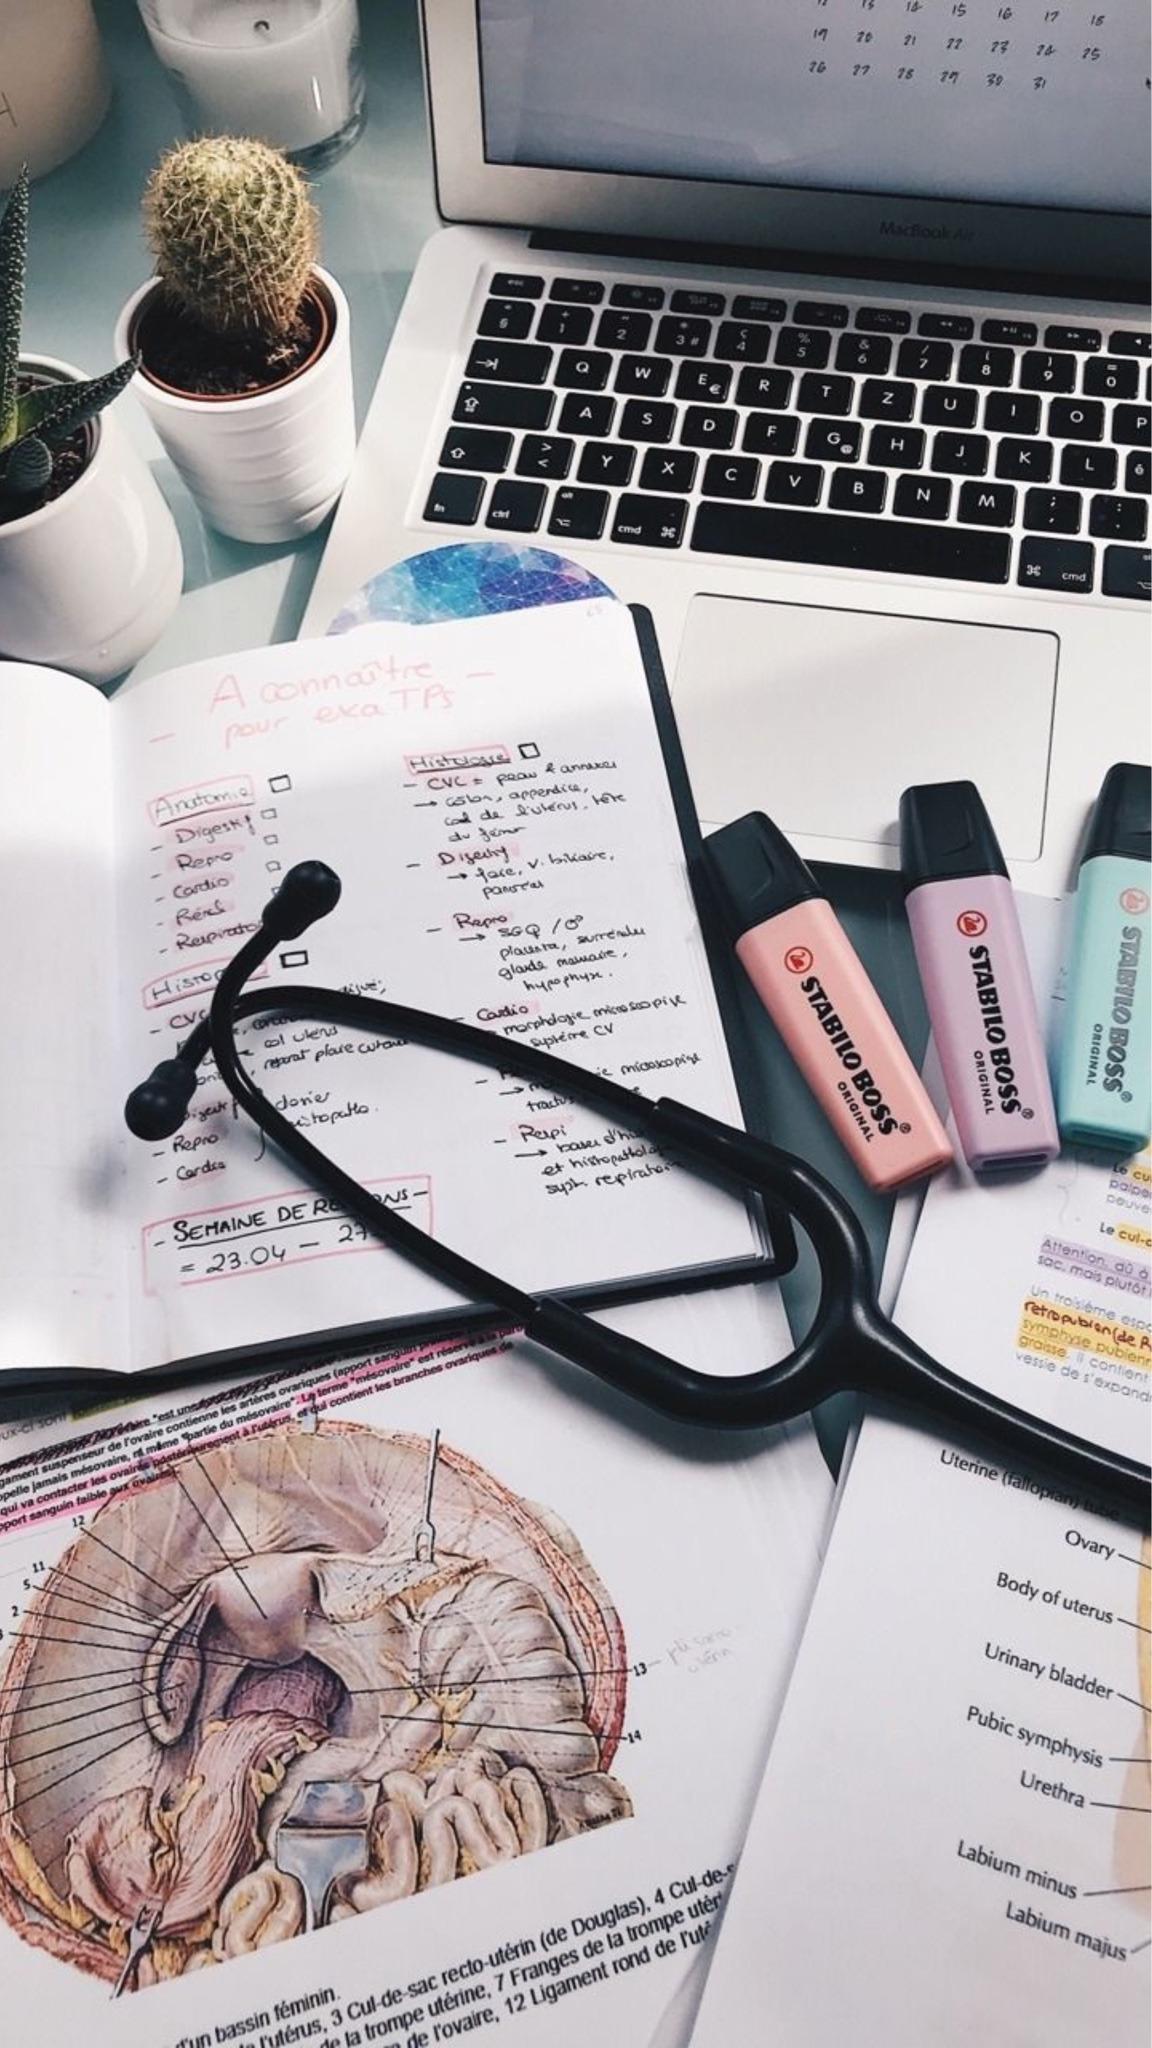 12 13 14 15 16 17 18
19 20 21 22 23 24 25
26 27 28 29 30 31
MacBook Air
esc
§ + 1 " 2 * 3 # ç 4 % 5 & 6 / 7 ( 8 ) 9 = 0
Q W E € R T Z U I O P
A S D F G @ H J K L é
> < Y X C V B N M ; :
fn ctrl alt cmd cmd
A connaître
pour exa TPs
Anatomie
- Digestif
- Repro
- Cardio
- Rénal
- Respirato
Histop
- CVC
col utérus
- Digestif
- Repro
- Cardio
dossier
histopatho.
- SEMAINE DE RE ONS -
= 23.04 - 27
Histologie
- CVC = peau & annexes
→ colon, appendice,
col de l'utérus, tête
du fémur
- Digestif
→ foie, v. biliaire,
pancréas
- Repro
→ SGQ /
placenta, surrénales
glande mammaire,
hypophyse.
- Cardio
morphologie microscopique
système CV
microscopique
tractus
- Respi
→ bases d'his
et histopatholo
syst. respiratoire
STABILO BOSS®
ORIGINAL
STABILO BOSS®
ORIGINAL
STABILO BOSS®
ORIGINAL
Le cu
palpe
peuve
Le cul-d
Attention, dû à
sac, mais plutôt
Un troisième espa
retropubien (de R
symphyse pubienn
graisse. Il contient
vessie de s'expand
aire "est un
contienne les artères ovariques (apport sanguin
gament suspenseur de l'ovaire
Le terme "mésovaire" est réservé à la part
ppelle jamais mésovaire, ni même "partie du mésovaire".
qui va contacter les ovaires postérieurement à l'utérus, et qui contient les branches ovariques de
pport sanguin faible aux ovaires
12
11
5
2
13
14
d'un bassin féminin.
e l'utérus, 3 Cul-de-sac recto-utérin (de Douglas), 4 Cul-de-s
de la trompe utérine, 7 Franges de la trompe utér
e de l'ovaire, 12 Ligament rond de l'uté
Uterine (fallopian) tube
Ovary
Body of uterus
Urinary bladder
Pubic symphysis
Urethra
Labium minus
Labium majus